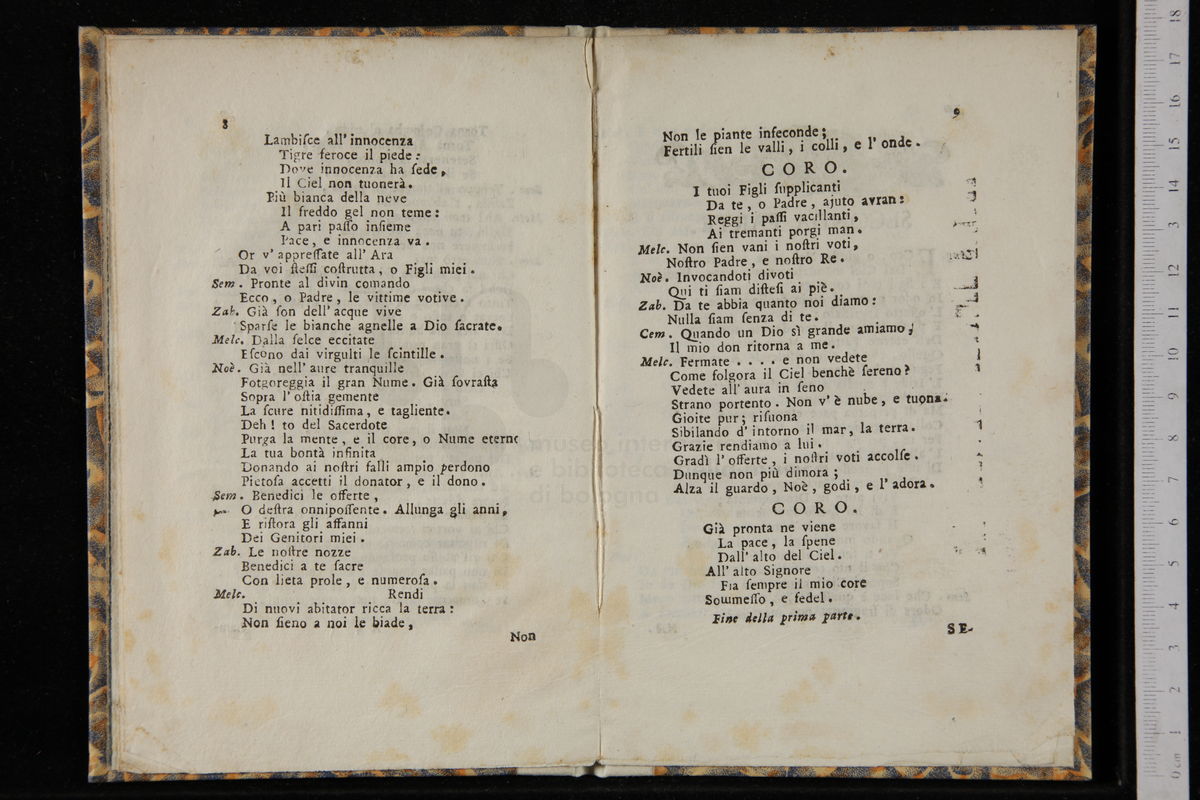 8
Lambiſce all' innocenza
Tigre feroce il piede:
Dove innocenza ha ſede,
Il Ciel non tuonerà.
Più bianca della neve
Il freddo gel non teme:
A pari paſſo inſieme
Pace, e innocenza va.
Or v' appreſſate all' Ara
Da voi ſteſſi coſtrutta, o Figli miei.
Sem. Pronte al divin comando
Ecco, o Padre, le vittime votive.
Zab. Già ſon dell' acque vive
Sparſe le bianche agnelle a Dio ſacrate.
Melc. Dalla ſelce eccitate
Eſcono dai virgulti le ſcintille.
Noè. Già nell' aure tranquille
Fotgoreggia il gran Nume. Già ſovraſta
Sopra l' oſtia gemente
La ſcure nitidiſſima, e tagliente.
Deh! tu del Sacerdote
Purga la mente, e il core, o Nume eterno
La tua bontà infinita
Donando ai noſtri falli ampio perdono
Pietoſa accetti il donator, e il dono.
Sem. Benedici le offerte,
O deſtra onnipoſſente. Allunga gli anni,
E riſtora gli affanni
Dei Genitori miei.
Zab. Le noſtre nozze
Benedici a te ſacre
Con lieta prole, e numeroſa.
Melc. Rendi
Di nuovi abitator ricca la terra:
Non ſieno a noi le biade,
Non
9
Non le piante infeconde;
Fertili ſien le valli, i colli, e l' onde.
CORO.
I tuoi Figli ſupplicanti
Da te, o Padre, ajuto avran:
Reggi i paſſi vacillanti,
Ai tremanti porgi man.
Melc. Non ſien vani i noſtri voti,
Noſtro Padre, e noſtro Re.
Noè. Invocandoti divoti
Qui ti ſiam diſteſi ai piè.
Zab. Da te abbia quanto noi diamo:
Nulla ſiam ſenza di te.
Cem. Quando un Dio sì grande amiamo;
Il mio don ritorna a me.
Melc. Fermate .... e non vedete
Come folgora il Ciel benchè ſereno?
Vedete all' aura in ſeno
Strano portento. Non v' è nube, e tuona.
Gioite pur; riſuona
Sibilando d' intorno il mar, la terra.
Grazie rendiamo a lui.
Gradì l' offerte, i noſtri voti accolſe.
Dunque non più dimora;
Alza il guardo, Noè, godi, e l' adora.
CORO.
Già pronta ne viene
La pace, la ſpene
Dall' alto del Ciel.
All' alto Signore
Fia ſempre il mio core
Sommeſſo, e fedel.
Fine della prima parte.
SE-